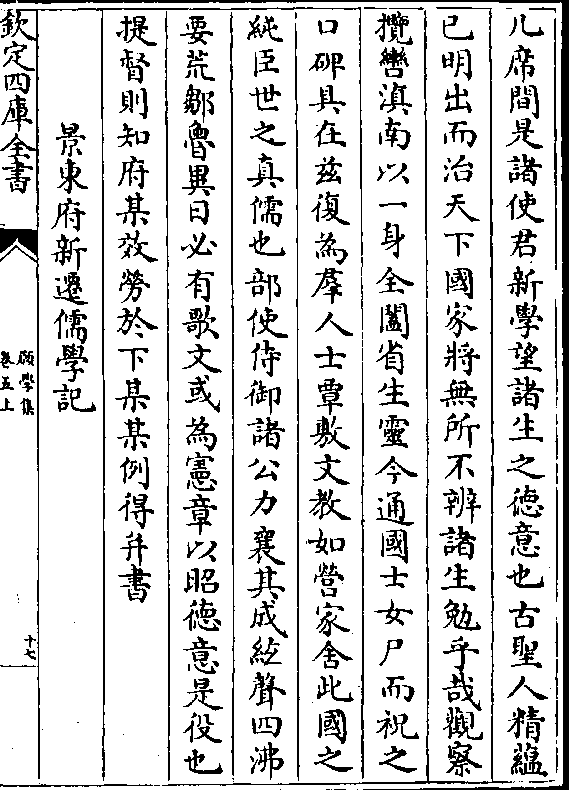 几席間是諸使君新學望諸生之徳意也古聖人精蘊
已明出而治天下國家將無所不辨諸生勉乎哉觀察
攬轡滇南以一身全闔省生靈今通國士女尸而祝之
口碑具在兹復為羣人士覃敷文教如營家舍此國之
純臣世之真儒也部使侍御諸公力襄其成絃聲四沸
要荒鄒魯異日必有歌文或為憲章以昭徳意是役也
提督則知府某效勞於下某某例得并書
景東府新遷儒學記
欽定四庫全書
願學集
卷五上
十七